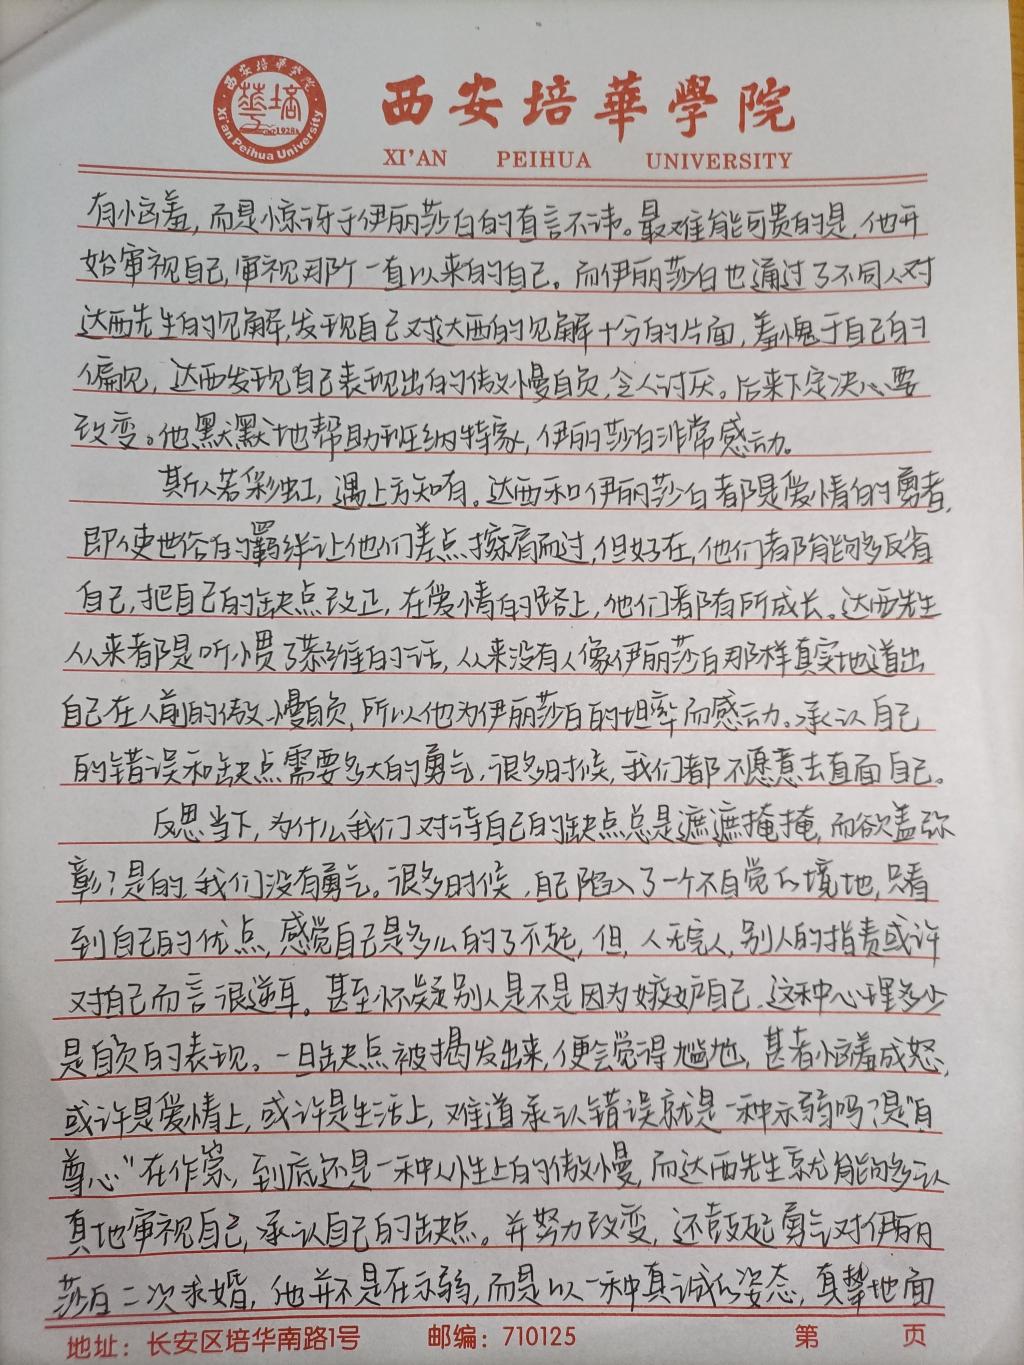 西安培華學院
XI'AN PEIHUA UNIVERSITY
西安培華学院
Xi'an Peihua University
1928
有恼羞，而是惊讶于伊丽莎白的直言不讳。最难能可贵的是，他开
始审视自己，审视那个一直以来的自己。而伊丽莎白也通过了不同人对
达西先生的见解，发现自己对达西的见解十分的片面，羞愧于自己的
偏见，达西发现自己表现出的傲慢自负，令人讨厌。后来下定决心要
改变。他默默地帮助班纳特家，伊丽莎白非常感动。
斯人若彩虹，遇上方知有。达西和伊丽莎白都是爱情的勇者，
即使世俗的羁绊让他们差点擦肩而过，但好在，他们都能够反省
自己，把自己的缺点改正，在爱情的路上，他们都有所成长。达西先生
从来都是听惯了恭维的话，从来没有人像伊丽莎白那样真实地道出
自己在人前的傲慢自负，所以他为伊丽莎白的坦率而感动。承认自己
的错误和缺点需要多大的勇气，很多时候，我们都不愿意去直面自己。
反思当下，为什么我们对待自己的缺点总是遮遮掩掩，而欲盖弥
彰？是的，我们没有勇气。很多时候，自己陷入了一个不自觉的境地，只看
到自己的优点，感觉自己是多么的了不起，但，人无完人，别人的指责或许
对自己而言很逆耳。甚至怀疑别人是不是因为嫉妒自己，这种心理多少
是自负的表现。一旦缺点被揭发出来，便会觉得尴尬，甚者恼羞成怒，
或许是爱情上，或许是生活上，难道承认错误就是一种示弱吗？是“自
尊心”在作祟，到底还是一种人性上的傲慢，而达西先生就能够认
真地审视自己，承认自己的缺点。并努力改变，还鼓起勇气对伊丽
莎白二次求婚，他并不是在示弱，而是以一种真诚的姿态，真挚地面
地址：长安区培华南路1号 邮编：710125 第 页